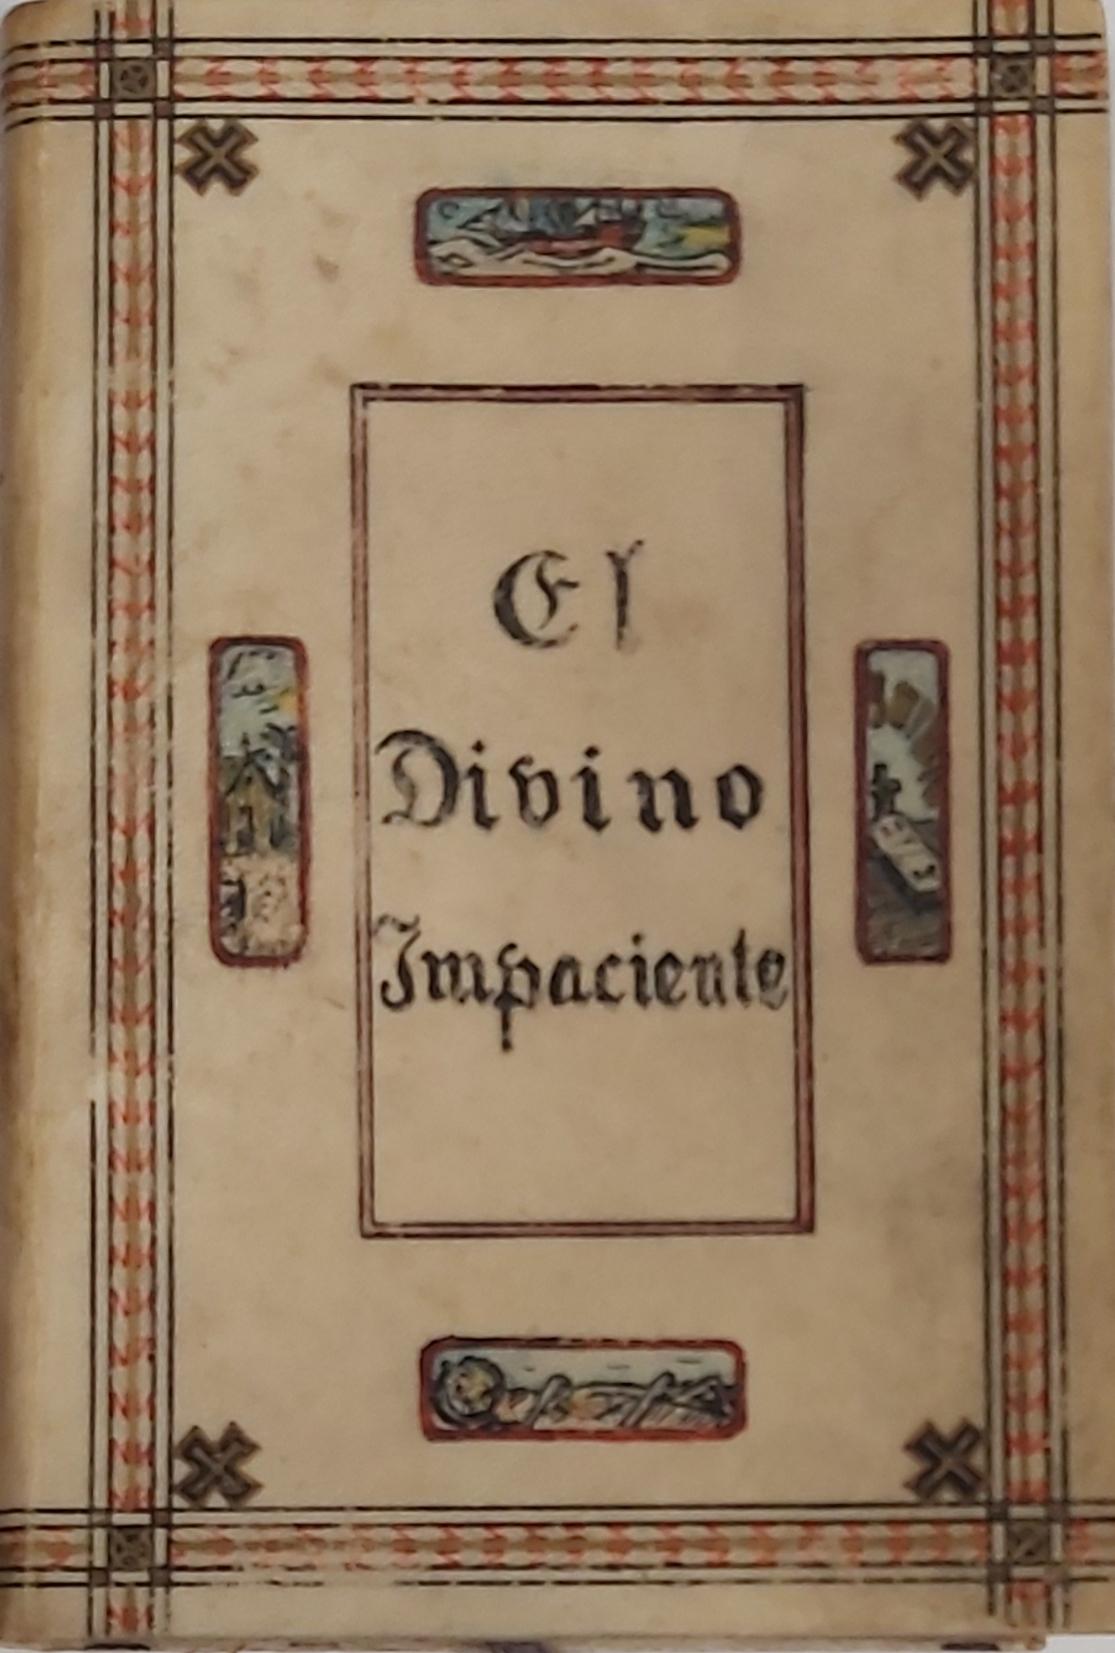 El
Divino
Impaciente